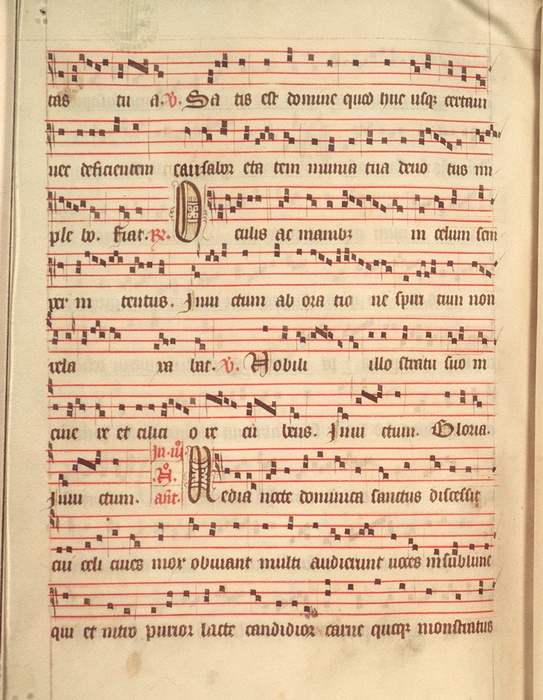 tas tu a. v. Sa tis est domine quod huc usque certaui
nec deficientem causabor eta tem munia tua deuo tus im
ple bo. Fiat. R. O culis ac manibus in celum sem
per in tentus. Inui ctum ab ora tio ne spiri tum non
rela xa bat. v. Nobili illo stratu suo in
cine re et cilici o re cu bans. Inui ctum. Gloria.
Inui ctum. In iii No añt. Media nocte dominica sanctus discessit
cui celi ciues mox obuiant multi audierunt uoces in sublime
qui et nitro purior lacte candidior carne quoque monstratus